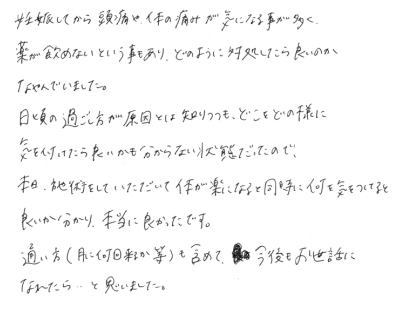 妊娠してから頭痛や、体の痛みが気になる事が多く、
薬が飲めないという事もあり、どのように対処したら良いのか
なやんでいました。
日頃の過ごし方が原因とは知りつつも、どこをどの様に
気を付けたら良いかも分からない状態だったので、
本日、施術をしていただいて体が楽になると同時に何を気をつけると
良いか分かり、本当に良かったです。
通い方(月に何回来るか等)も含めて、今後もお世話に
なれたら‥と思いました。